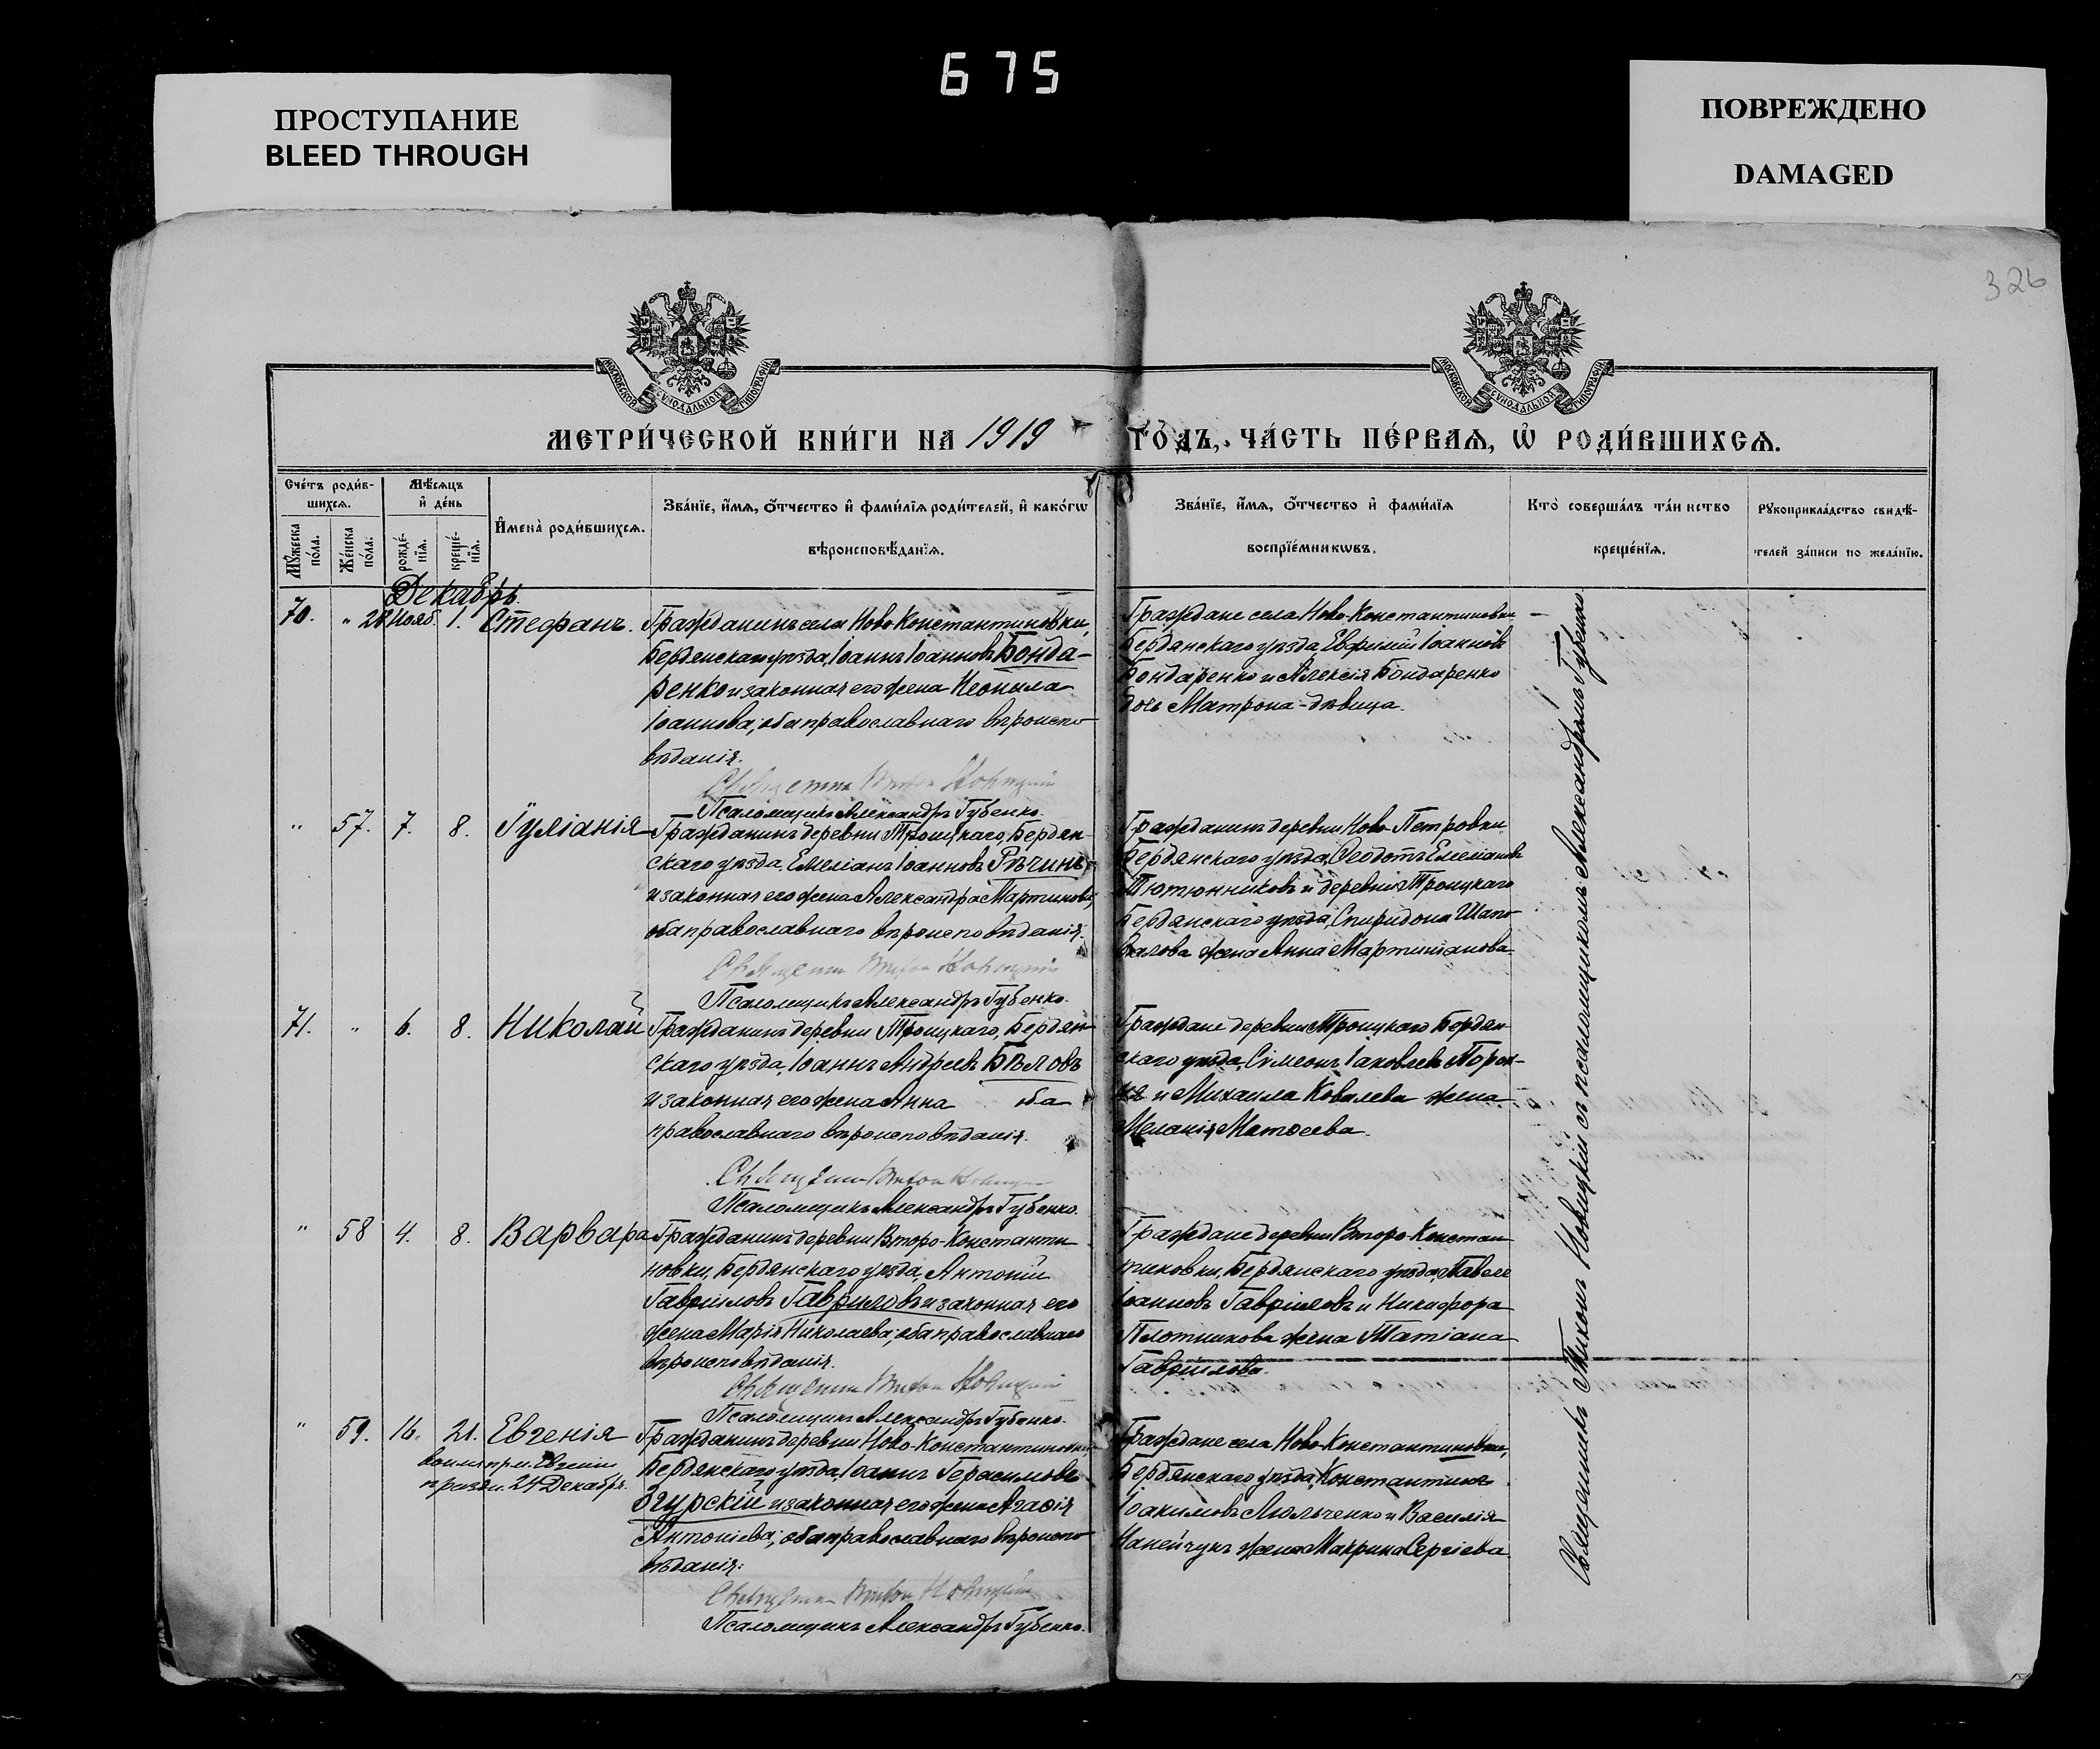 675
ПРОСТУПАНИЕ
BLEED THROUGH
ПОВРЕЖДЕНО
DAMAGED
326
МОСКОВСКОЙ СѴНОДАЛЬНОЙ ТИПОГРАФІИ
МОСКОВСКОЙ СѴНОДАЛЬНОЙ ТИПОГРАФІИ
МЕТРИ́ЧЕСКОЙ КНИ́ГИ НА 1919 ГО́ДЪ, ЧА́СТЬ ПЕ́РВАѦ, Ѡ҆ РОДИ́ВШИХСѦ.
Сче́тъ роди́в-
шихсѧ.
Мꙋ́жеска по́ла.
Же́нска по́ла.
Мѣ́сѧцъ
и҆ де́нь
рожде́-
нїѧ.
креще́-
нїѧ.
И҆мена̀ роди́вшихсѧ.
Зва́нїе, и҆́мѧ, ѻ҆́тчество и҆ фами́лїѧ роди́телей, и҆ како́гѡ
вѣроисповѣ́данїѧ.
Зва́нїе, и҆́мѧ, ѻ҆́тчество и҆ фами́лїѧ
воспрїе́мникѡвъ.
Кто̀ соверша́лъ та́инство
креще́нїѧ.
Рꙋкоприкла́дство свидѣ́-
телей за́писи по жела́нїю.
Декабрь.
70. " 28 Нояб. 1. Стефанъ.
Гражданинъ села Ново-Константиновки,
Бердянскаго уѣзда, Іоаннъ Іоанновъ Бонда-
ренко и законная его жена Неонила
Іоаннова, оба православнаго вѣроиспо-
вѣданія.
Священникъ Тихон Новицкий
Псаломщикъ Александръ Губенко.
Граждане села Ново-Константиновки
Бердянскаго уѣзда, Евфимій Іоанновъ
Бондаренко и Алексія Бондаренко
дочь Матрона - дѣвица.
" 57. 7. 8. Іуліанія
Гражданинъ деревни Троицкаго, Бердян-
скаго уѣзда, Емеліанъ Іоанновъ Рѣчинъ
и законная его жена Александра Мартинова,
оба православнаго вѣроисповѣданія.
Священникъ Тихон Новицкий
Псаломщикъ Александръ Губенко.
Гражданинъ деревни Ново-Петровки
Бердянскаго уѣзда, Ѳеодотъ Емеліановъ
Тютюнниковъ и деревни Троицкаго
Бердянскаго уѣзда, Спиридона Шапо-
валова жена Анна Мартиніанова
71. " 6. 8. Николай
Гражданинъ деревни Троицкаго, Бердян-
скаго уѣзда, Іоаннъ Андреевъ Бѣловъ
и законная его жена Анна оба
православнаго вѣроисповѣданія.
Священникъ Тихон Новицкий
Псаломщикъ Александръ Губенко.
Граждане деревни Троицкаго Бердян-
скаго уѣзда, Сімеонъ Іаковлевъ
и Михаила Ковалева жена
Меланія Матѳеева.
" 58 4. 8. Варвара
Гражданинъ деревни Второ-Константи-
новки, Бердянскаго уѣзда, Антоній
Гавріиловъ Гавриловъ и законная его
жена Марія Николаева, оба православнаго
вѣроисповѣданія.
Священникъ Тихон Новицкий
Псаломщикъ Александръ Губенко.
Граждане деревни Второ-Констан-
тиновки, Бердянскаго уѣзда, Павелъ
Іоанновъ Гавріиловъ и Никифора
Плотникова жена Татіана
Гавріилова.
" 59. 16. 21. Евгенія
во имя пр. м. Евгеніи
праздн. 24 Декабря.
Гражданинъ деревни Ново-Константиновки
Бердянскаго уѣзда, Іоаннъ Герасимовъ
Згурскій и законная его жена Агаѳія
Антоніева, оба православнаго вѣроиспо-
вѣданія.
Священникъ Тихон Новицкий
Псаломщикъ Александръ Губенко.
Граждане села Ново-Константиновки,
Бердянскаго уѣзда, Константинъ
Іоакимовъ Люльченко и Василія
жена Макрина Сергіева.
Священникъ Тихонъ Новицкій съ псаломщикомъ Александромъ Губенко